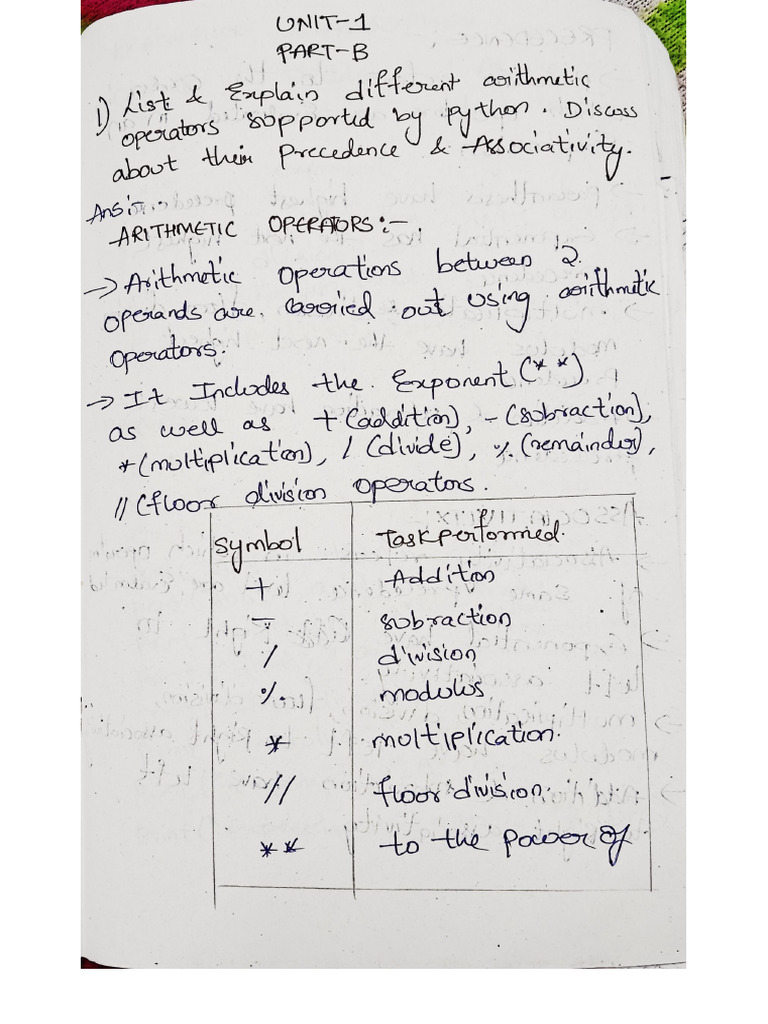 UNIT-1
PART-B
1) List & Explain different arithmetic
operators supported by python. Discuss
about their Precedence & Associativity.
Ans:-
ARITHMETIC OPERATORS:-.
→ Arithmetic operations between 2
operands are carried out using arithmetic
operators.
→ It Includes the Exponent (**)
as well as +(addition), -(subraction),
*(multiplication), / (divide), % (remainder),
// (floor division operators.
Symbol Task performed.
+ Addition
- subraction
/ division
% modulus
* multiplication.
// floor division.
** to the power of